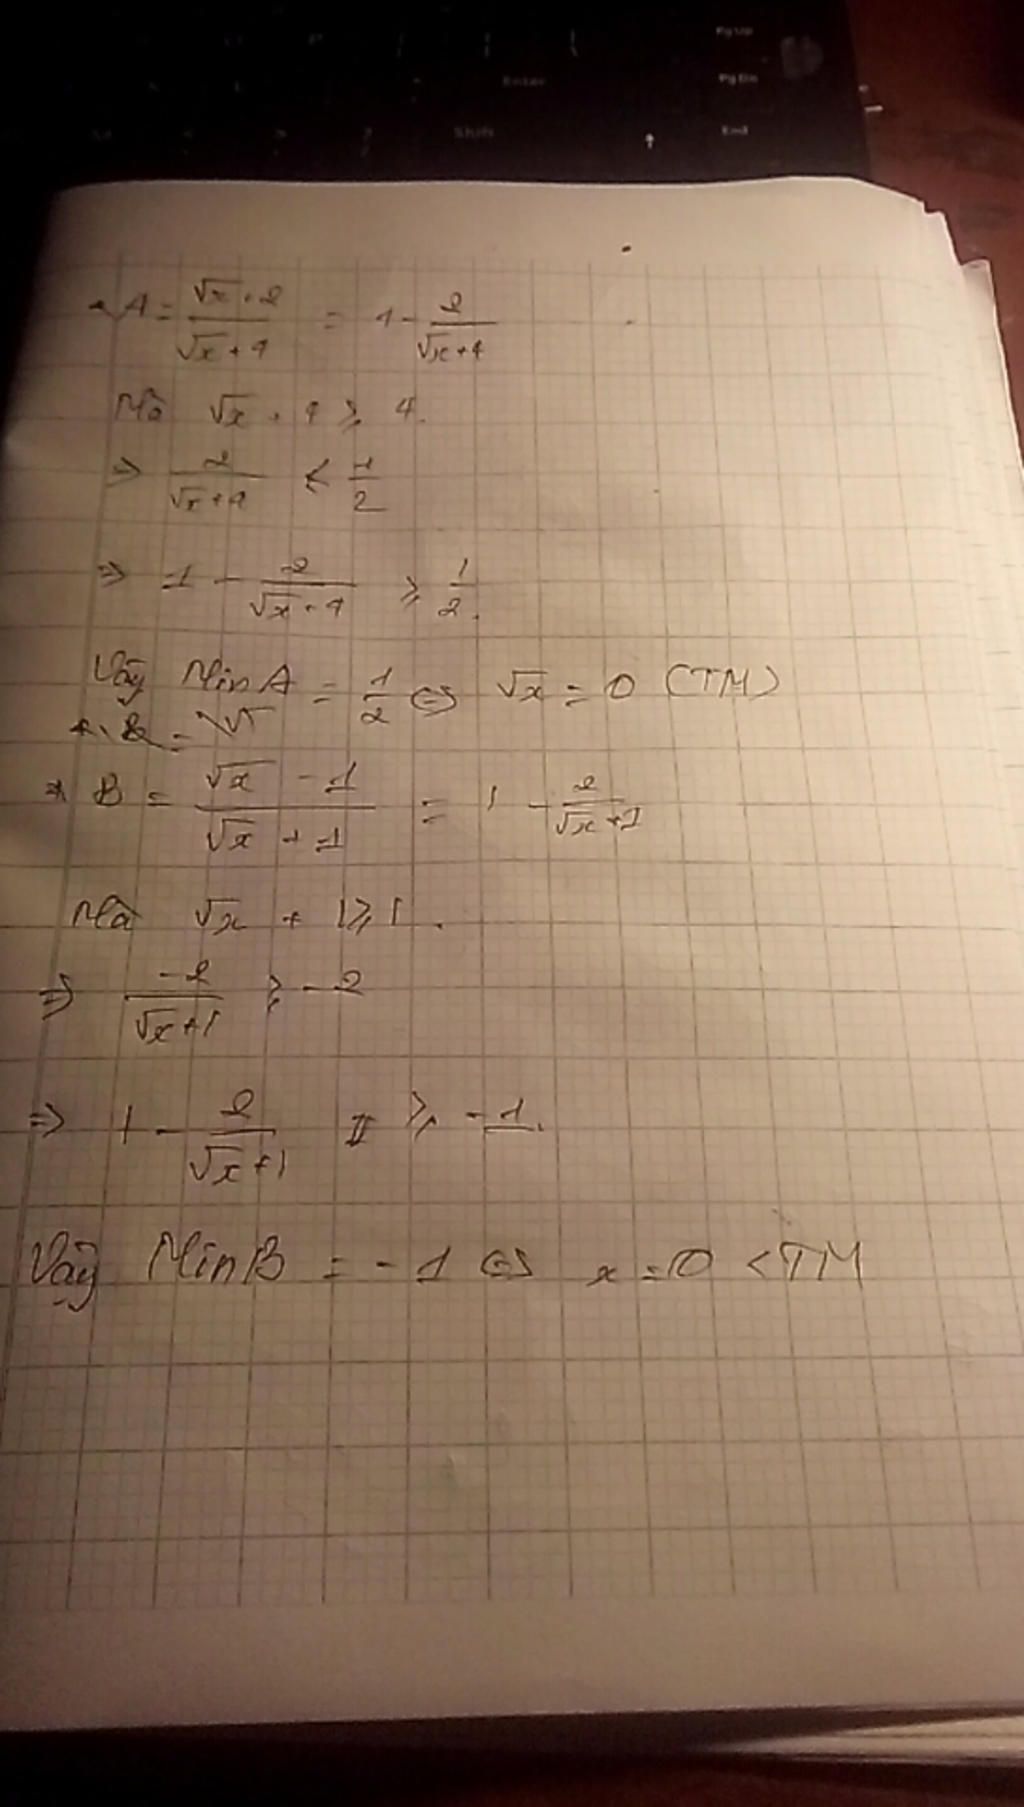 PgUp
Enter
PgDn
Shift
↑
End
* A = \frac{\sqrt{x}+2}{\sqrt{x}+4} = 1 - \frac{2}{\sqrt{x}+4}
Mà \sqrt{x} + 4 ≥ 4.
⇒ \frac{2}{\sqrt{x}+4} ≤ \frac{1}{2}
⇒ 1 - \frac{2}{\sqrt{x}+4} ≥ \frac{1}{2}.
Vậy Min A = \frac{1}{2} ⇔ \sqrt{x} = 0 (TM)
* B = \frac{\sqrt{x}-1}{\sqrt{x}+1} = 1 - \frac{2}{\sqrt{x}+1}
Mà \sqrt{x} + 1 ≥ 1.
⇒ \frac{-2}{\sqrt{x}+1} ≥ -2
⇒ 1 - \frac{2}{\sqrt{x}+1} ≥ -1.
Vậy Min B = -1 ⇔ x = 0 <TM